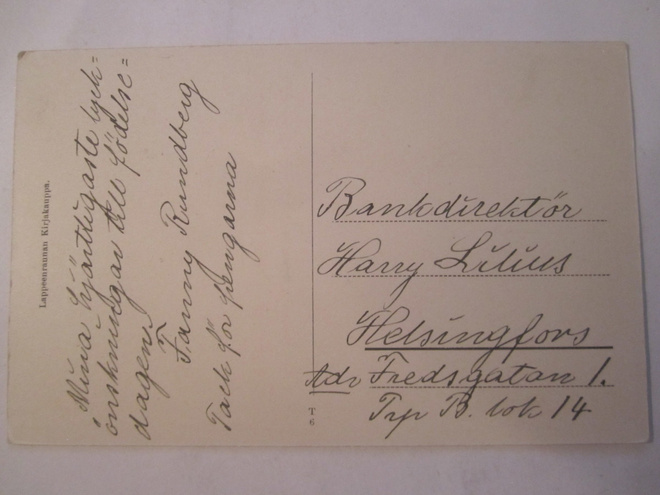 Lappeenrannan Kirjakauppa.
Mina hjärtligaste lyck=
önskningar till födelse=
dagen.
Fanny Rundberg
Tack för pengarna
T
6.
Bankdirektör
Harry Lilius
Helsingfors
Adr Fredsgatan 1.
Trp B. bok 14